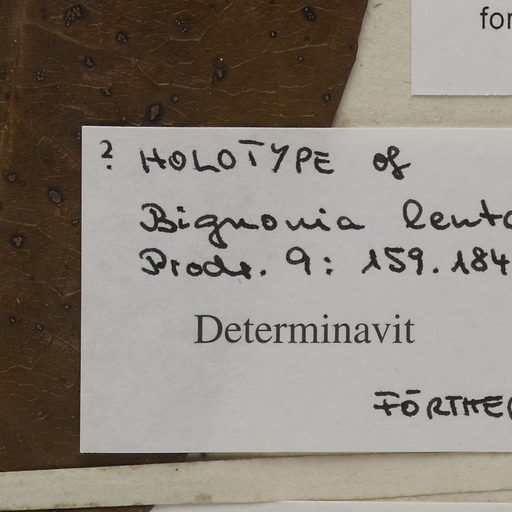 for
? HOLOTYPE of
Bignonia lenta
Prodr. 9: 159. 184
Determinavit
FÖRTHER